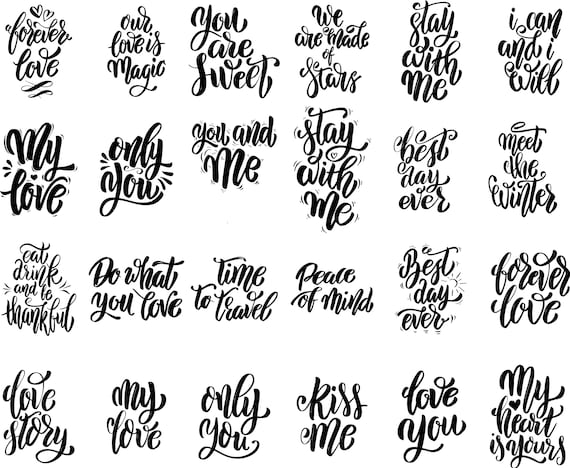 forever
love
our
love is
Magic
You
are
Sweet
we
are made
of
Stars
stay
with
me
i can
and i
will
My
love
only
you
you and
Me
stay
with
me
best
day
ever
meet
the
winter
eat
drink
and be
thankful
Do what
you love
time
to travel
Peace
of mind
Best
day
ever
forever
love
love
story
my
love
only
you
kiss
me
love
you
My
heart
is yours